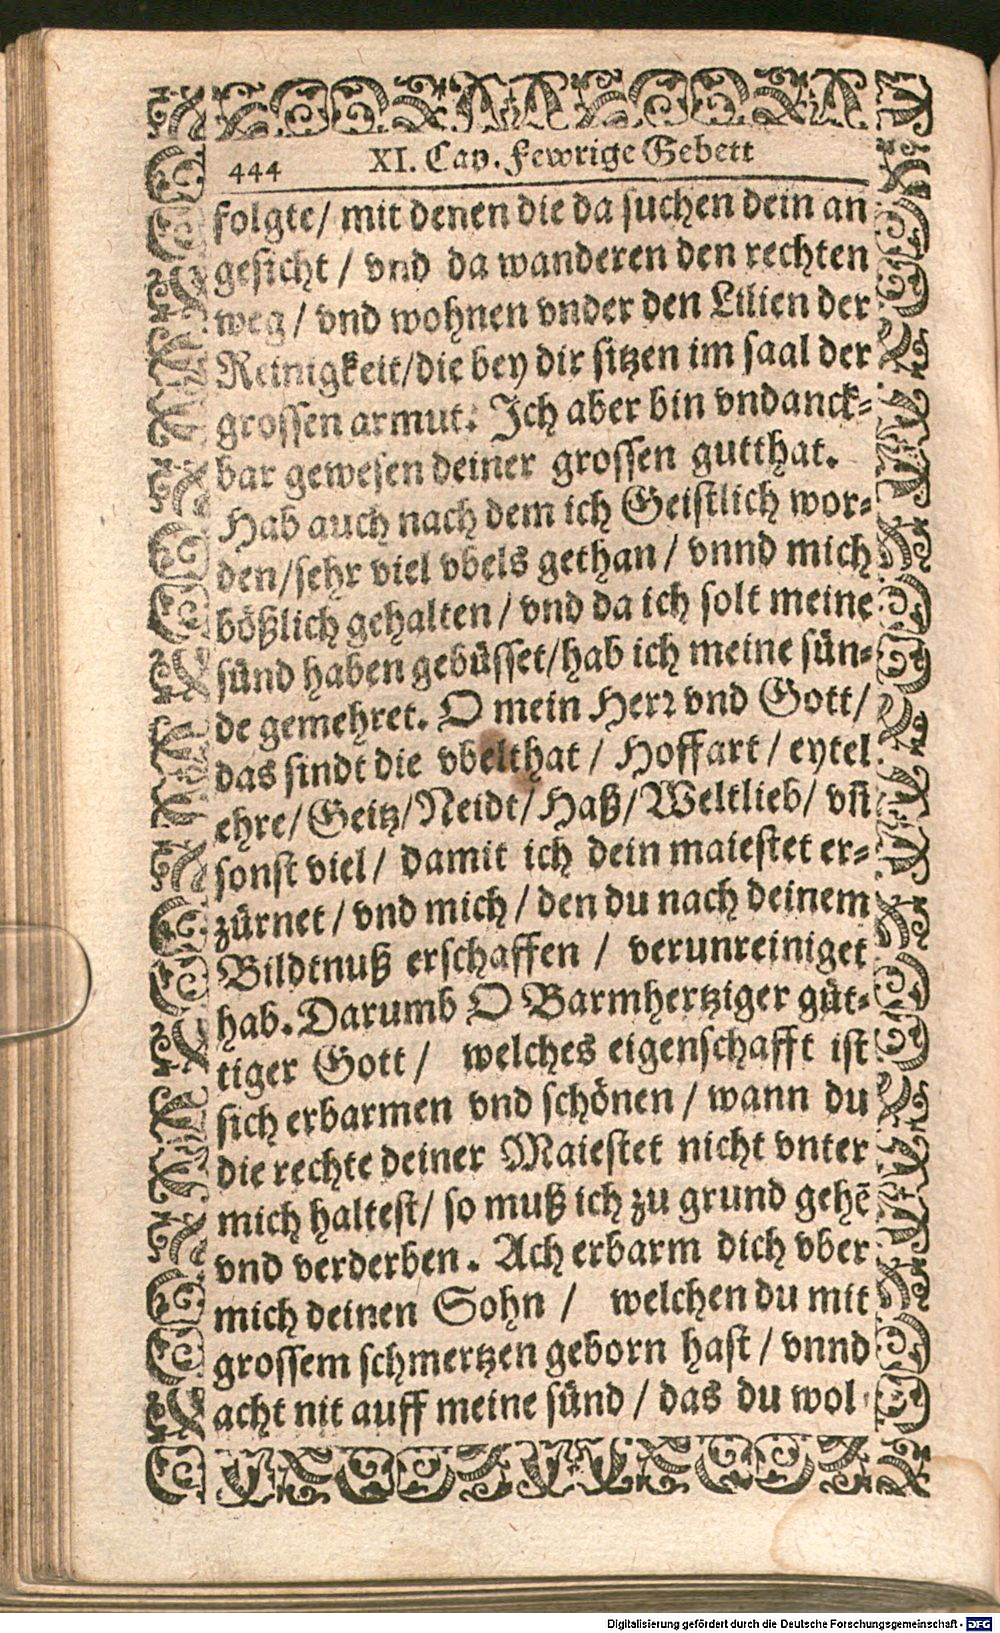 444 XI. Cap. Fewrige Gebett
folgte/ mit denen die da suchen dein an
gesicht / vnd da wanderen den rechten
weg / vnd wohnen vnder den Lilien der
Reinigkeit/die bey dir sitzen im saal der
grossen armut. Ich aber bin vndanck-
bar gewesen deiner grossen gutthat.
Hab auch nach dem ich Geistlich wor-
den/sehr viel vbels gethan / vnnd mich
bößlich gehalten / vnd da ich solt meine
sünd haben gebüsset/hab ich meine sün-
de gemehret. O mein Herr vnd Gott/
das sindt die vbelthat / Hoffart / eytel
ehre/ Geitz/ Neidt/ Haß/ Weltlieb/ vñ
sonst viel / damit ich dein maiestet er-
zürnet / vnd mich / den du nach deinem
Bildtnuß erschaffen / verunreiniget
hab. Darumb O Barmhertziger güt-
tiger Gott / welches eigenschafft ist
sich erbarmen vnd schönen / wann du
die rechte deiner Maiestet nicht vnter
mich haltest/ so muß ich zu grund gehē
vnd verderben. Ach erbarm dich vber
mich deinen Sohn / welchen du mit
grossem schmertzen geborn hast / vnnd
acht nit auff meine sünd / das du wol
Digitalisierung gefördert durch die Deutsche Forschungsgemeinschaft - DFG